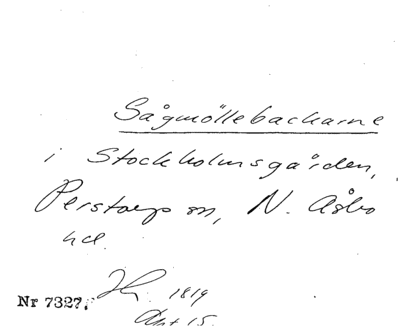 Sågmöllebackarne
i Stockholmsgården,
Perstorp sn, N. Åsbo
hd.
1819
Nr 7327.
Akt 15.